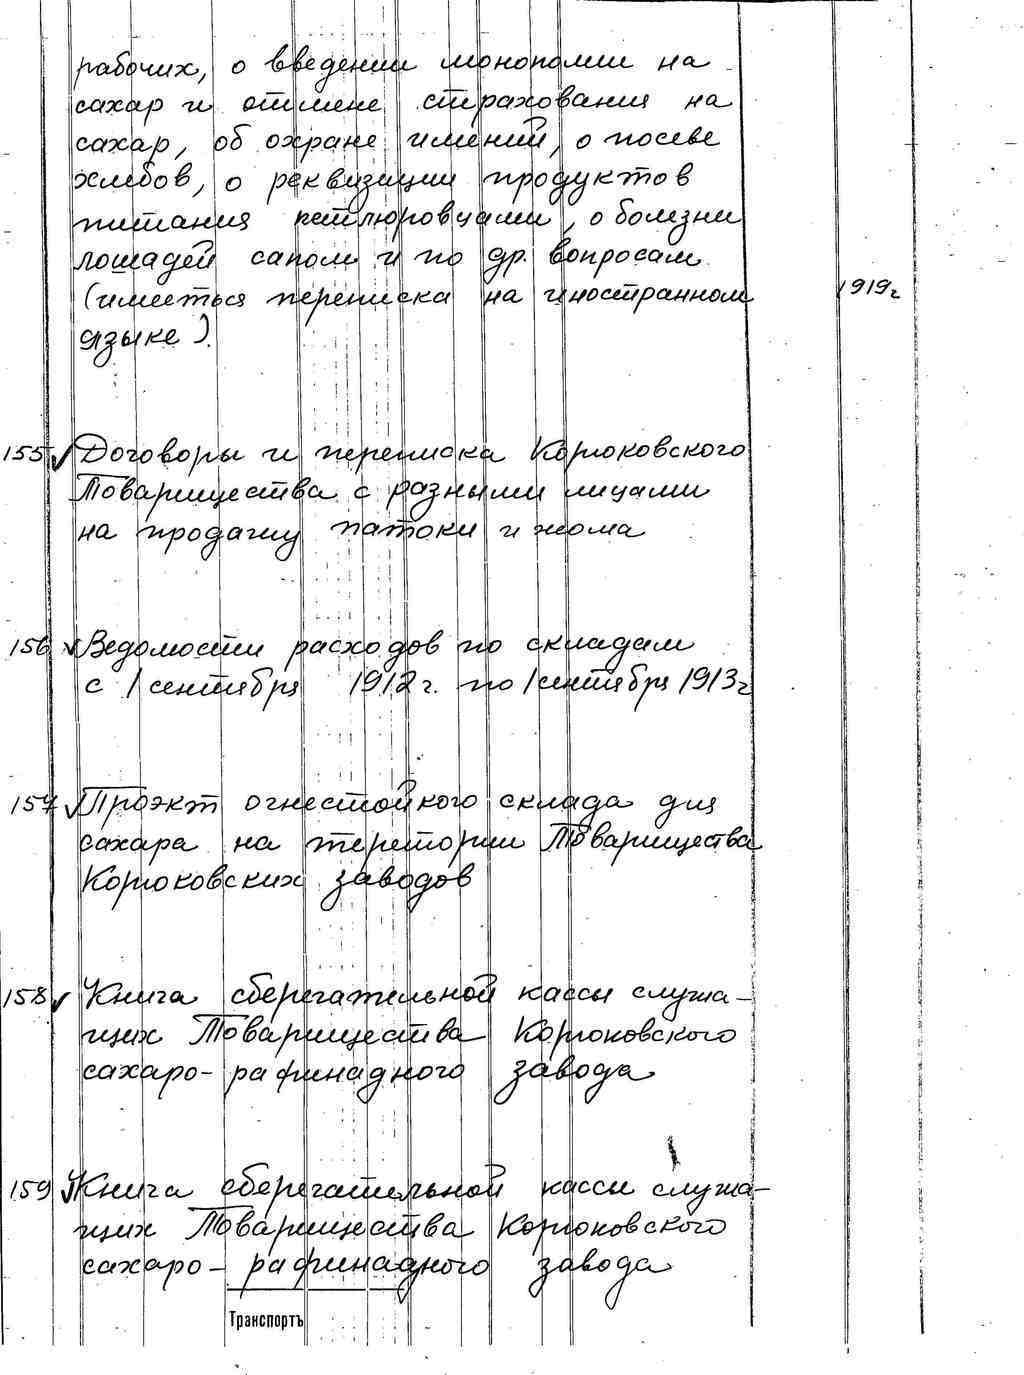 рабочих, о введении монополии на
сахар и отмене страхования на
сахар, об охране имений, о посеве
хлебов, о реквизиции продуктов
питания петлюровцами, о болезни
лошадей сапом и по др. вопросам
(имееться переписка на иностранном 1919г
языке).
155 Договоры и переписка Корюковского
Товарищества с разными лицами
на продажу патоки и жома
156 Ведомости расходов по складам
с 1 сентября 1912г. по 1 сентября 1913г
157 Проэкт огнестойкого склада для
сахара на теретории Товарищества
Корюковских заводов
158 Книга сберегательной кассы служа-
щих Товарищества Корюковского
сахаро-рафинадного завода
159 Книга сберегательной кассы служа-
щих Товарищества Корюковского
сахаро-рафинадного завода
Транспортъ